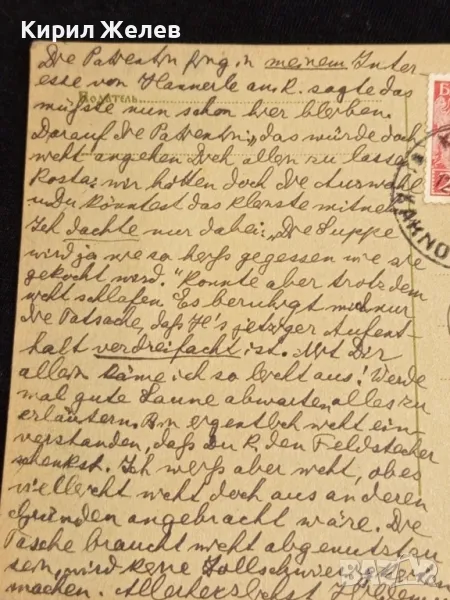 Кирил Желев
Die Patientin fing in meinem Inter
esse von Hannerle an. R. sagte das
müsste nun schon hier bleiben.
Податель
Darauf die Patientin: „das würde doch
nicht angehen Dich allein zu lassen
Kosta: wir hätten doch die Auswahl
u Du könntest das kleinste mitneh
Ich dachte nur dabei: „Die Suppe
wird ja nie so heiß gegessen wie sie
gekocht wird." Konnte aber trotzdem
nicht schlafen. Es beruhigt mich nur
die Tatsache, daß H's jetziger Aufent-
halt verdreifacht ist. Mit Dir
allein käme ich so leicht aus! Werde
mal gute Laune abwarten, alles zu
erläutern. Bin eigentlich nicht ein-
verstanden, daß Du R. den Feldstecher
schenkst. Ich weiß aber nicht, ob es
vielleicht nicht doch aus anderen
Gründen angebracht wäre. Die
Tasche braucht nicht abgenutzt zu
sein, wird keine Zollschwierigkeiten
machen. Allerherzlichst
bazar.bg